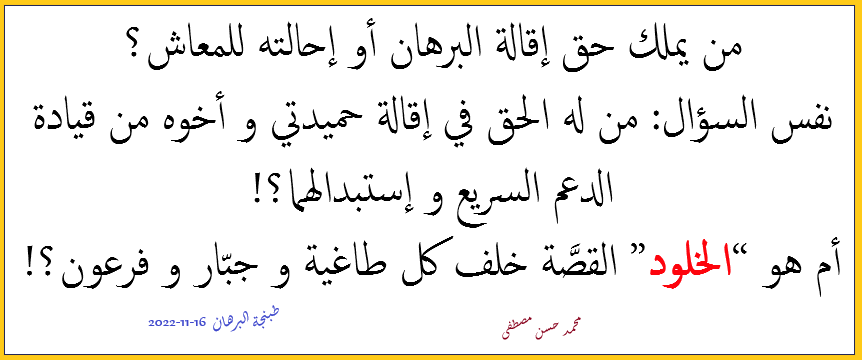 من يملك حق إقالة البرهان أو إحالته للمعاش؟
نفس السؤال: من له الحق في إقالة حميدتي و أخوه من قيادة
الدعم السريع و إستبدالهما؟!
أم هو “الخلود” القصَّة خلف كل طاغية و جبّار و فرعون؟!
محمد حسن مصطفى
طبنجة البرهان 16-11-2022